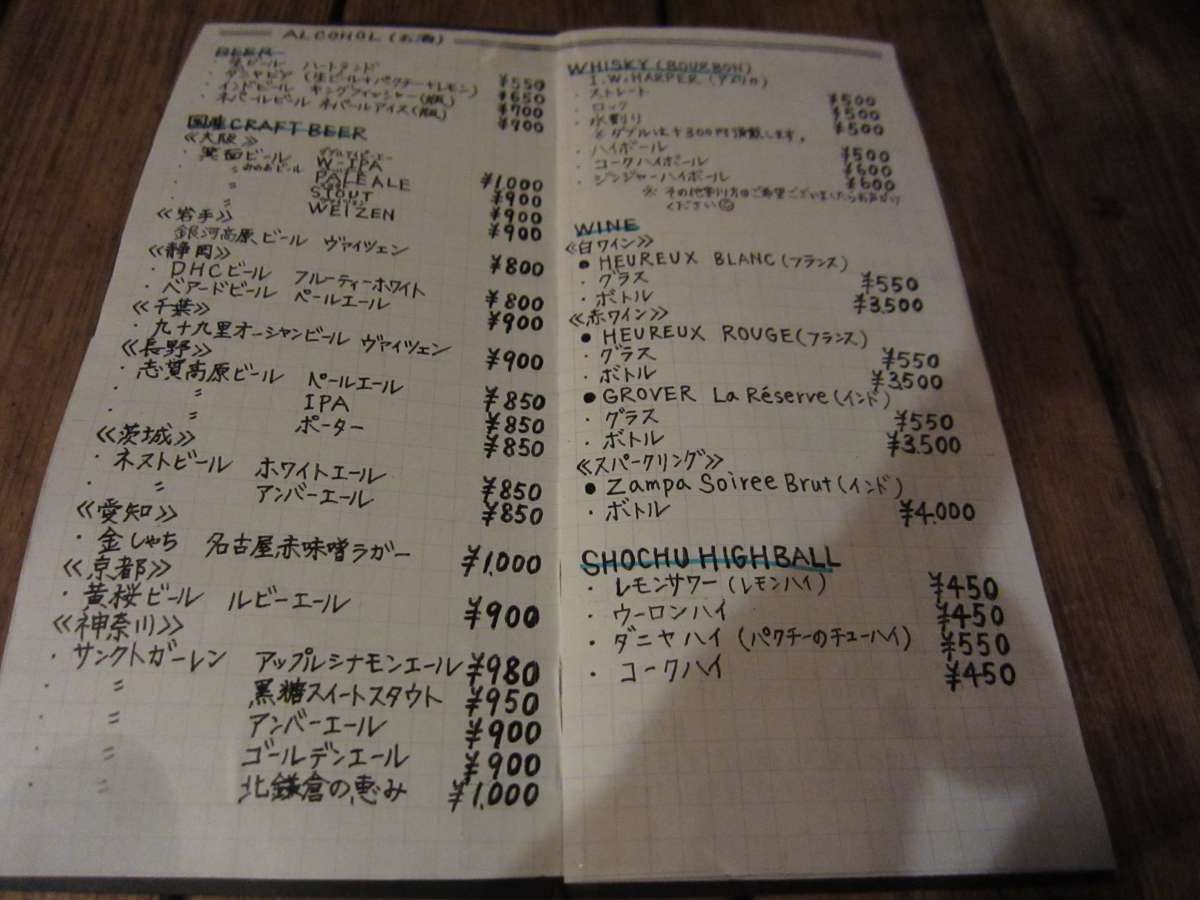 ALCOHOL (お酒)
BEER
・生ビール ハートランド ¥550
・ダニヤビア (生ビール+パクチー+レモン) ¥650
・インドビール キングフィッシャー(瓶) ¥700
・ネパールビール ネパールアイス(瓶) ¥700
国産CRAFT BEER
≪大阪≫
・箕面ビール W-IPA ¥1,000
みのおビール
・〃 PALE ALE ¥900
・〃 STOUT ¥900
・〃 WEIZEN ¥900
≪岩手≫
銀河高原ビール ヴァイツェン ¥800
≪静岡≫
・DHCビール フルーティーホワイト ¥800
・ベアードビール ペールエール ¥900
≪千葉≫
・九十九里オーシャンビール ヴァイツェン ¥900
≪長野≫
・志賀高原ビール ペールエール ¥850
・〃 IPA ¥850
・〃 ポーター ¥850
≪茨城≫
・ネストビール ホワイトエール ¥850
・〃 アンバーエール ¥850
≪愛知≫
・金しゃち 名古屋赤味噌ラガー ¥1,000
≪京都≫
・黄桜ビール ルビーエール ¥900
≪神奈川≫
・サンクトガーレン アップルシナモンエール ¥980
・〃 黒糖スイートスタウト ¥950
・〃 アンバーエール ¥900
・〃 ゴールデンエール ¥900
・〃 北鎌倉の恵み ¥1,000
WHISKY (BOURBON)
I.W.HARPER (アメリカ)
・ストレート ¥500
・ロック ¥500
・水割り ¥500
※ダブルは+300円頂戴します。
・ハイボール ¥500
・コークハイボール ¥600
・ジンジャーハイボール ¥600
※その他割り方のご希望ございましたらお声がけ
ください☺
WINE
≪白ワイン≫
● HEUREUX BLANC (フランス)
・グラス ¥550
・ボトル ¥3.500
≪赤ワイン≫
● HEUREUX ROUGE (フランス)
・グラス ¥550
・ボトル ¥3.500
● GROVER La Réserve (インド)
・グラス ¥550
・ボトル ¥3.500
≪スパークリング≫
● Zampa Soiree Brut (インド)
・ボトル ¥4.000
SHOCHU HIGHBALL
・レモンサワー (レモンハイ) ¥450
・ウーロンハイ ¥450
・ダニヤハイ (パクチーのチューハイ) ¥550
・コークハイ ¥450